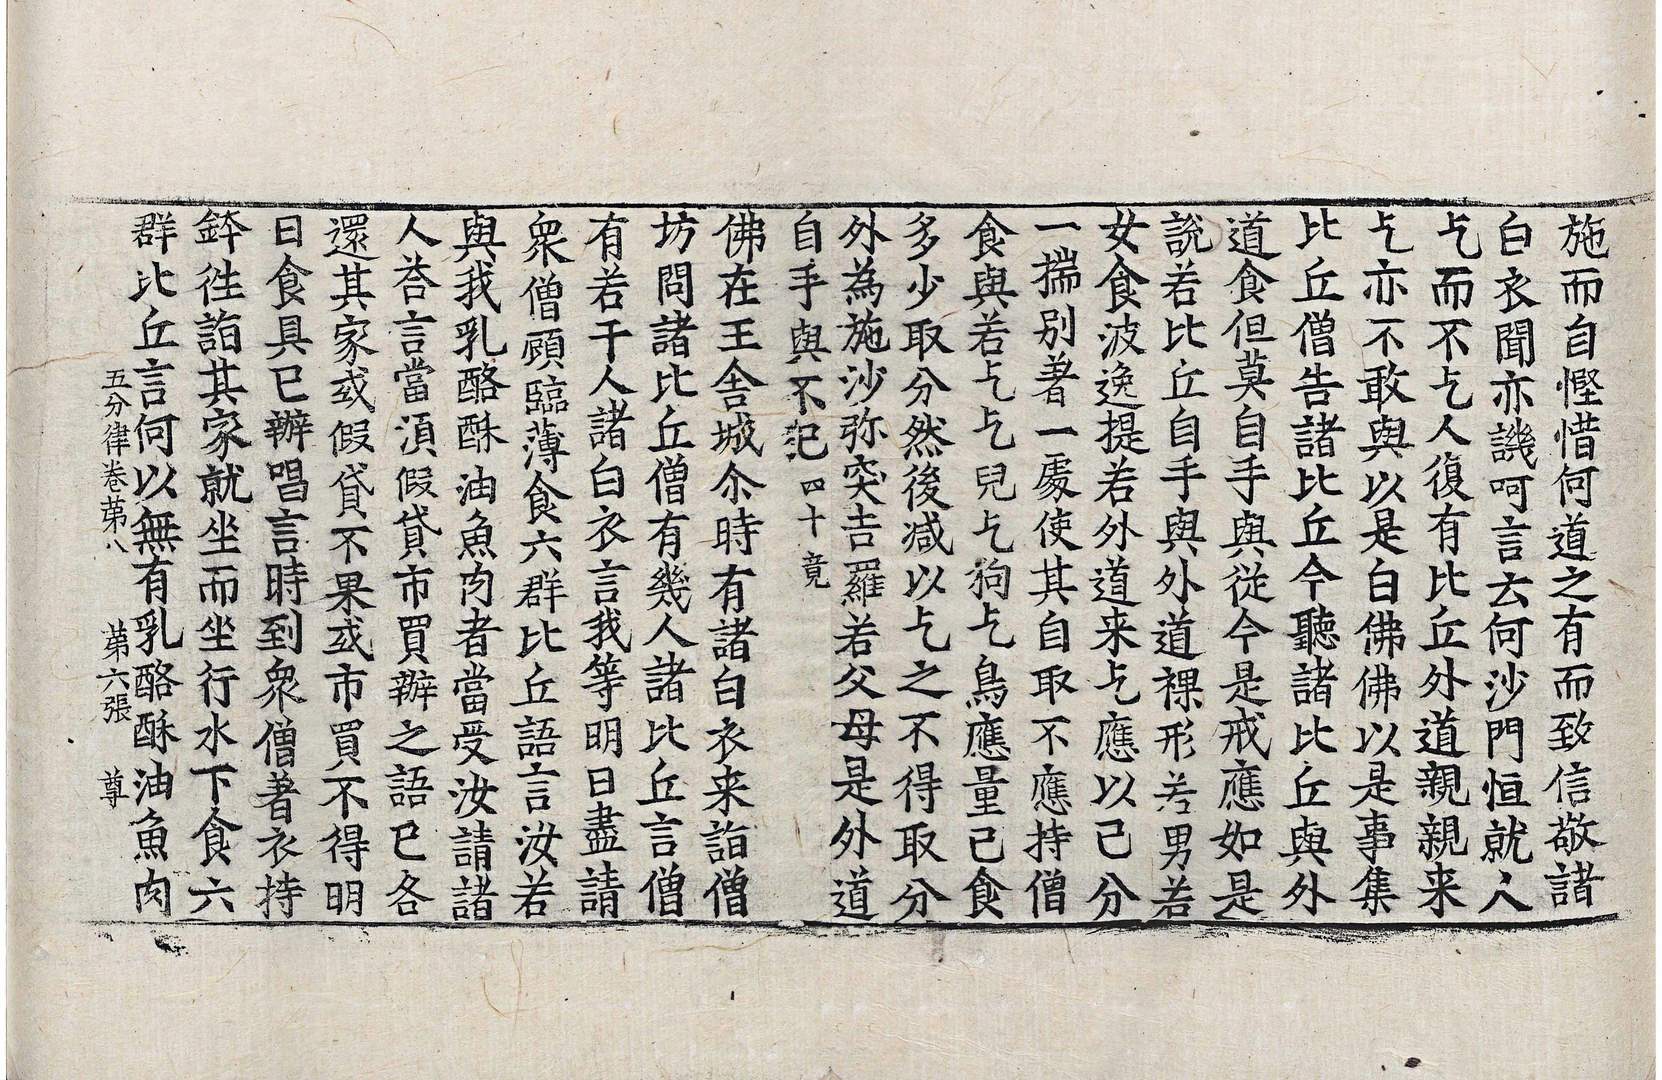 施而自慳惜何道之有而致信敬諸
白衣聞亦譏呵言云何沙門恒就人
乞而不乞人復有比丘外道親親来
乞亦不敢與以是白佛佛以是事集
比丘僧告諸比丘今聽諸比丘與外
道食但莫自手與從今是戒應如是
說若比丘自手與外道裸形若男若
女食波逸提若外道来乞應以己分
一揣別著一處使其自取不應持僧
食與若乞乞兒乞狗乞鳥應量己食
多少取分然後减以乞之不得取分
外為施沙弥突吉羅若父母是外道
自手與不犯四十竟
佛在王舍城尒時有諸白衣来詣僧
坊問諸比丘僧有幾人諸比丘言僧
有若干人諸白衣言我等明日盡請
衆僧顧臨薄食六群比丘語言汝若
與我乳酪酥油魚肉者當受汝請諸
人荅言當湏假貸市買辦之語已各
還其家或假貸不果或市買不得明
日食具已辦唱言時到衆僧著衣持
鉢徃詣其家就坐而坐行水下食六
群比丘言何以無有乳酪酥油魚肉
五分律卷苐八 苐六張 尊